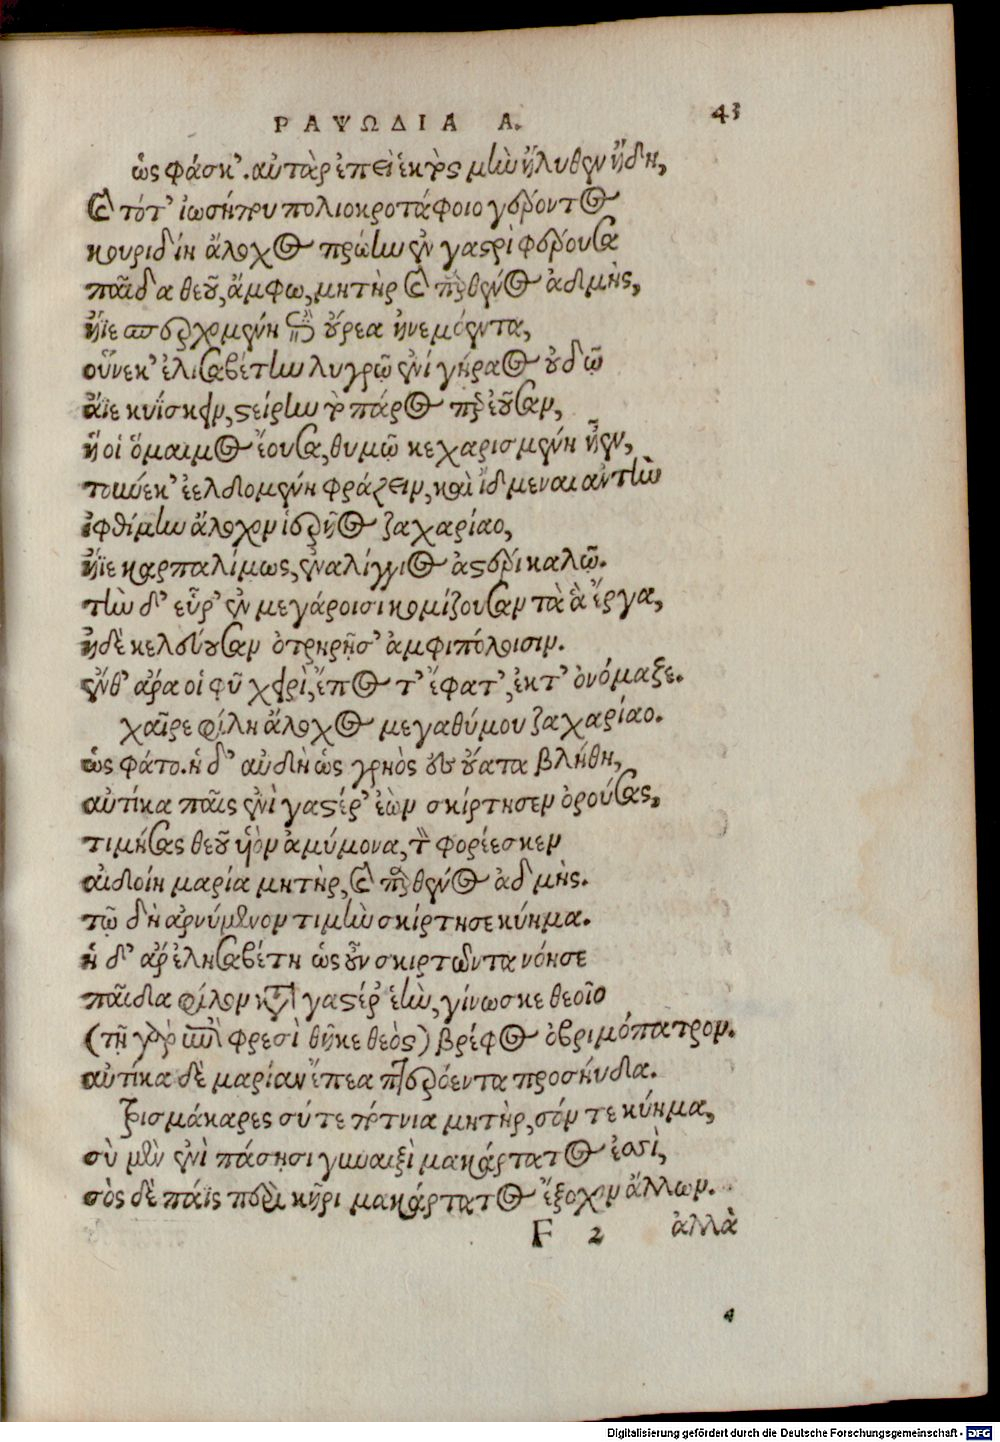 ΡΑΨΩΔΙΑ Α. 43
ὡς φάσκ'. αὐτὰρ ἐπεὶ ἑκτὸς μὴν ἤλυθεν ἤδη,
καὶ τότ' ἰωσήπου πολιοκροτάφοιο γέροντος
κουριδίη ἄλοχος πρώτην ἐν γαστρὶ φέρουσα
παῖδα θεοῦ, ἄμφω, μητὴρ καὶ παρθένος ἀδμής,
ἤϊε σπερχομένη κατ' οὔρεα ἠνεμόεντα,
οὕνεκ' ἐλισαβέτην λυγρῷ ἐνὶ γήραος οὐδῷ
ἄϊε κυΐσκειν, στείρην τοπάρος περ ἐοῦσαν,
ἥ οἱ ὅμαιμος ἔουσα, θυμῷ κεχαρισμένη ἦεν,
τοὔνεκ' ἐελδομένη φράζειν, καὶ ἴδμεναι αὐτὴν
ἰφθίμην ἄλοχον ἱερῆος ζαχαρίαο,
ἤϊε καρπαλίμως, ἐναλίγγιος ἀστέρι καλῷ.
τὴν δ' εὗρ' ἐν μεγάροισι κομίζουσαν τὰ ἃ ἔργα,
ἠδὲ κελεύουσαν ὀτρηρῇσ' ἀμφιπόλοισιν.
ἔνθ' ἄρα οἱ φῦ χειρὶ, ἔπος τ' ἔφατ', ἐκ τ' ὀνόμαξε.
χαῖρε φίλη ἄλοχος μεγαθύμου ζαχαρίαο.
ὡς φάτο. ἡ δ' αὐδὴ ὡς γρηὸς ἐς οὔατα βλήθη,
αὐτίκα παῖς ἐνὶ γαστέρ' ἑὼν σκίρτησεν ὀρούσας,
τιμήσας θεοῦ υἱὸν ἀμύμονα, τὸν φορέεσκεν
αἰδοίη μαρία μητὴρ, καὶ παρθένος ἀδμής.
τῷ δὴ ἀρνύμενον τιμὴν σκίρτησε κύημα.
ἡ δ' ἄρ' ἐλησαβέτη ὡς οὖν σκιρτῶντα νόησε
παῖδα φίλον κατὰ γαστέρ' ἑὴν, γίνωσκε θεοῖο
(τῇ γὰρ ἐπὶ φρεσὶ θῆκε θεὸς) βρέφος ὀβριμόπατρον.
αὐτίκα δὲ μαρίαν ἔπεα πτερόεντα προσηύδα.
τρὶς μάκαρες σύ τε πότνια μητὴρ, σόν τε κύημα,
σὺ μὲν ἐνὶ πάσησι γυναιξὶ μακάρτατος ἐσσὶ,
σὸς δὲ πάϊς περὶ κῆρι μακάρτατος ἔξοχον ἄλλων.
F 2 ἀλλὰ
4
Digitalisierung gefördert durch die Deutsche Forschungsgemeinschaft - DFG